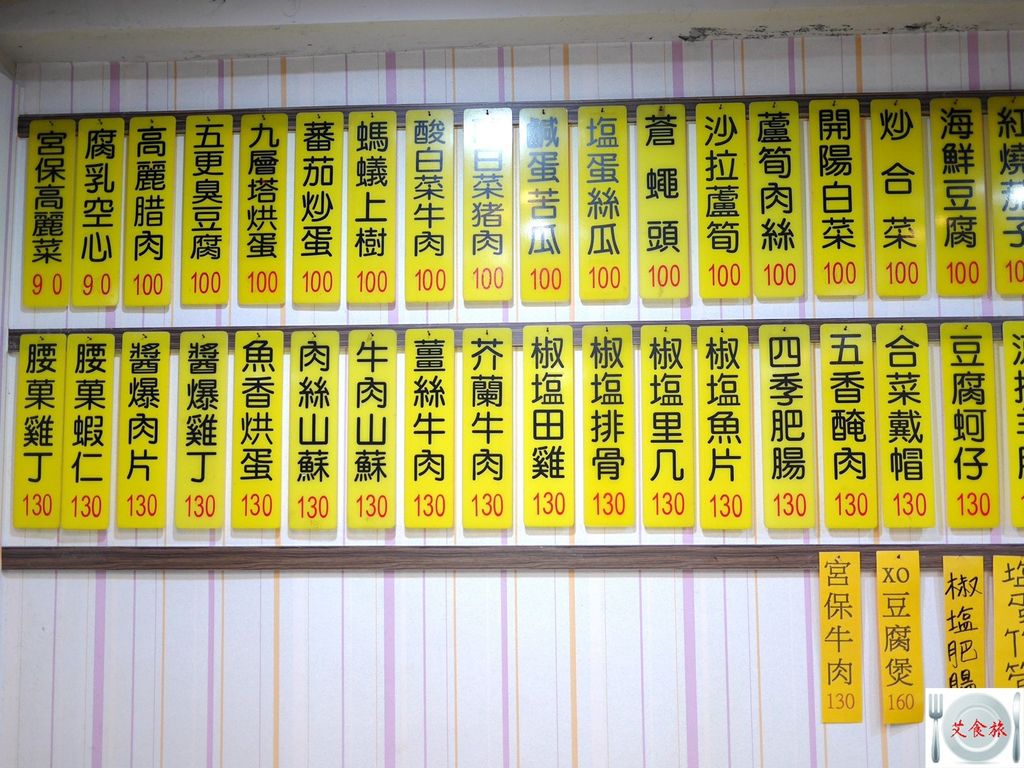 宮保高麗菜 90
腐乳空心 90
高麗腊肉 100
五更臭豆腐 100
九層塔烘蛋 100
蕃茄炒蛋 100
螞蟻上樹 100
酸白菜牛肉 100
白菜猪肉 100
鹹蛋苦瓜 100
塩蛋絲瓜 100
蒼蠅頭 100
沙拉蘆筍 100
蘆筍肉絲 100
開陽白菜 100
炒合菜 100
海鮮豆腐 100
紅燒茄子 10
腰菓雞丁 130
腰菓蝦仁 130
醬爆肉片 130
醬爆雞丁 130
魚香烘蛋 130
肉絲山蘇 130
牛肉山蘇 130
薑絲牛肉 130
芥蘭牛肉 130
椒塩田雞 130
椒塩排骨 130
椒塩里几 130
椒塩魚片 130
四季肥腸 130
五香醃肉 130
合菜戴帽 130
豆腐蚵仔 130
宮保牛肉 130
XO豆腐煲 160
椒塩肥腸
塩蛋竹筍
艾食旅